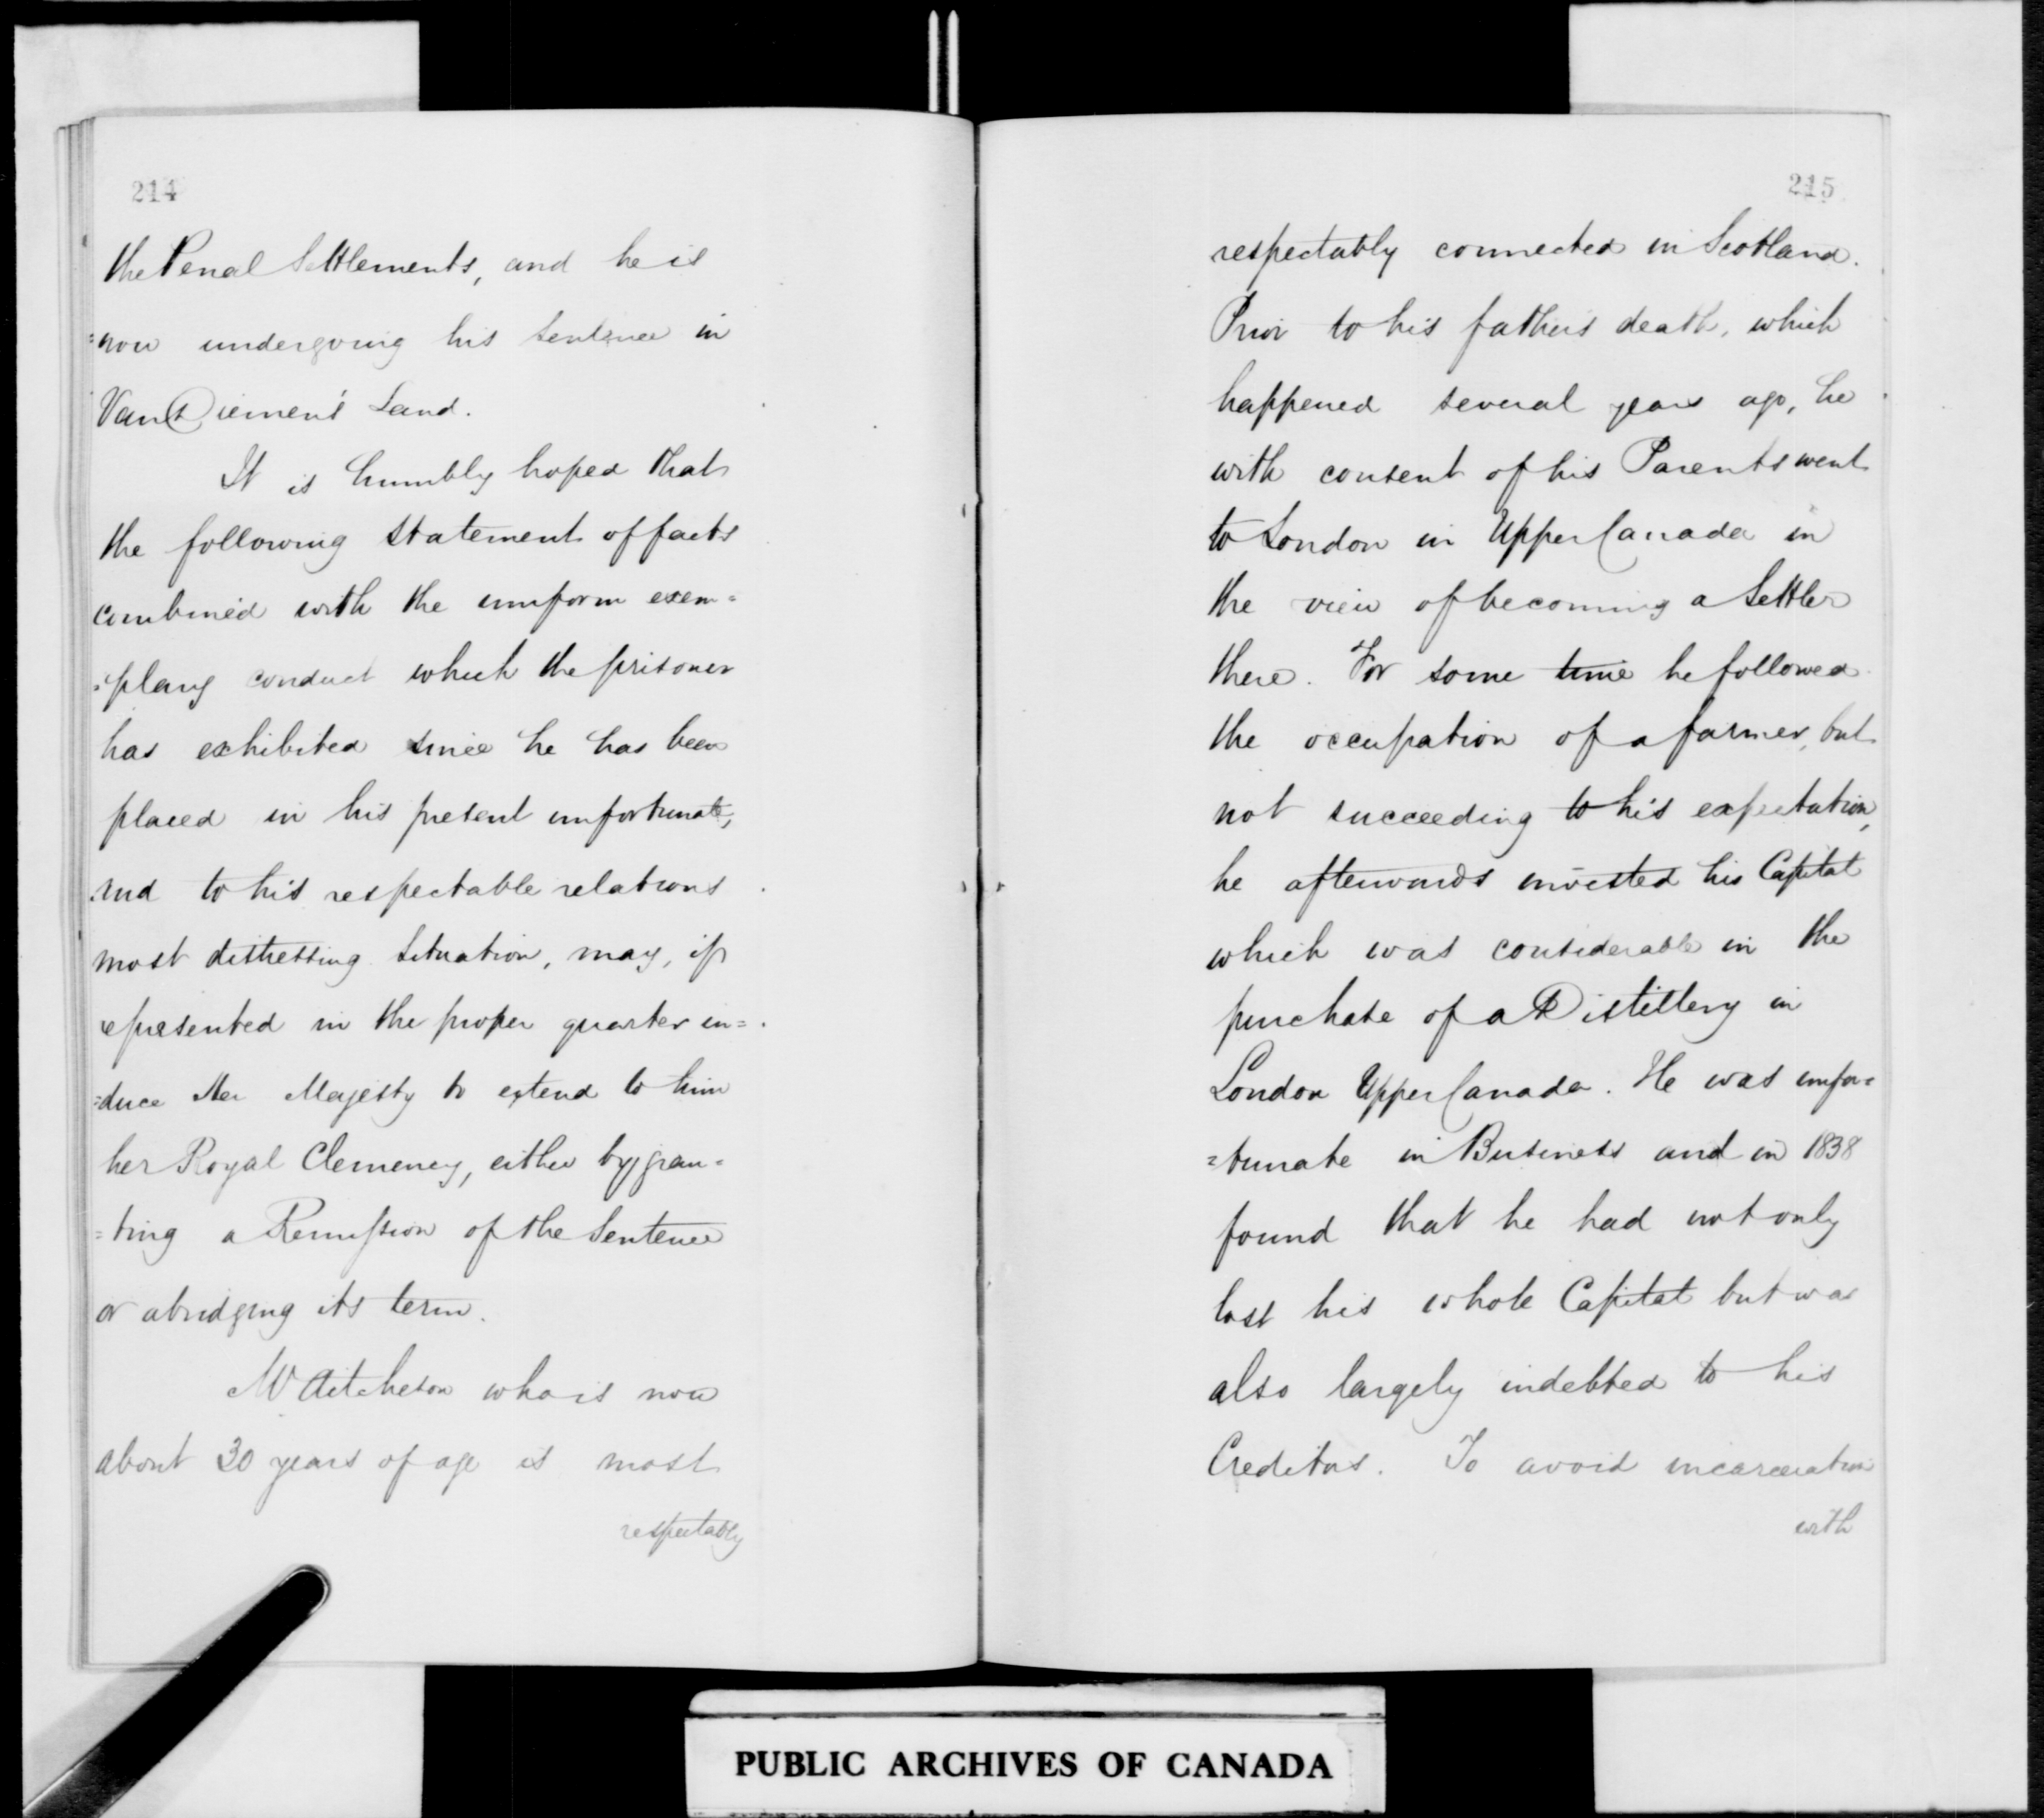 214
the Penal Settlements, and he is
=now undergoing his sentence in
Van Diemen's Land.
It is humbly hoped that
the following statement of facts
combined with the uniform exem=
=plary conduct which the prisoner
has exhibited since he has been
placed in his present unfortunate,
and to his respectable relations
most distressing situation, may, if
represented in the proper quarter in=
=duce Her Majesty to extend to him
her Royal Clemency, either by gran=
=ting a Remission of the Sentence
or abridging its term.
Mr Aitcheson who is now
about 30 years of age is most
respectably
215
respectably connected in Scotland.
Prior to his father's death, which
happened several years ago, he
with consent of his Parents went
to London in Upper Canada in
the view of becoming a Settler
there. For some time he followed
the occupation of a farmer, but
not succeeding to his expectation,
he afterwards invested his Capital
which was considerable in the
purchase of a Distillery in
London Upper Canada. He was unfor=
=tunate in Business and in 1838
found that he had not only
lost his whole Capital but was
also largely indebted to his
Creditors. To avoid incarceration
with
PUBLIC ARCHIVES OF CANADA